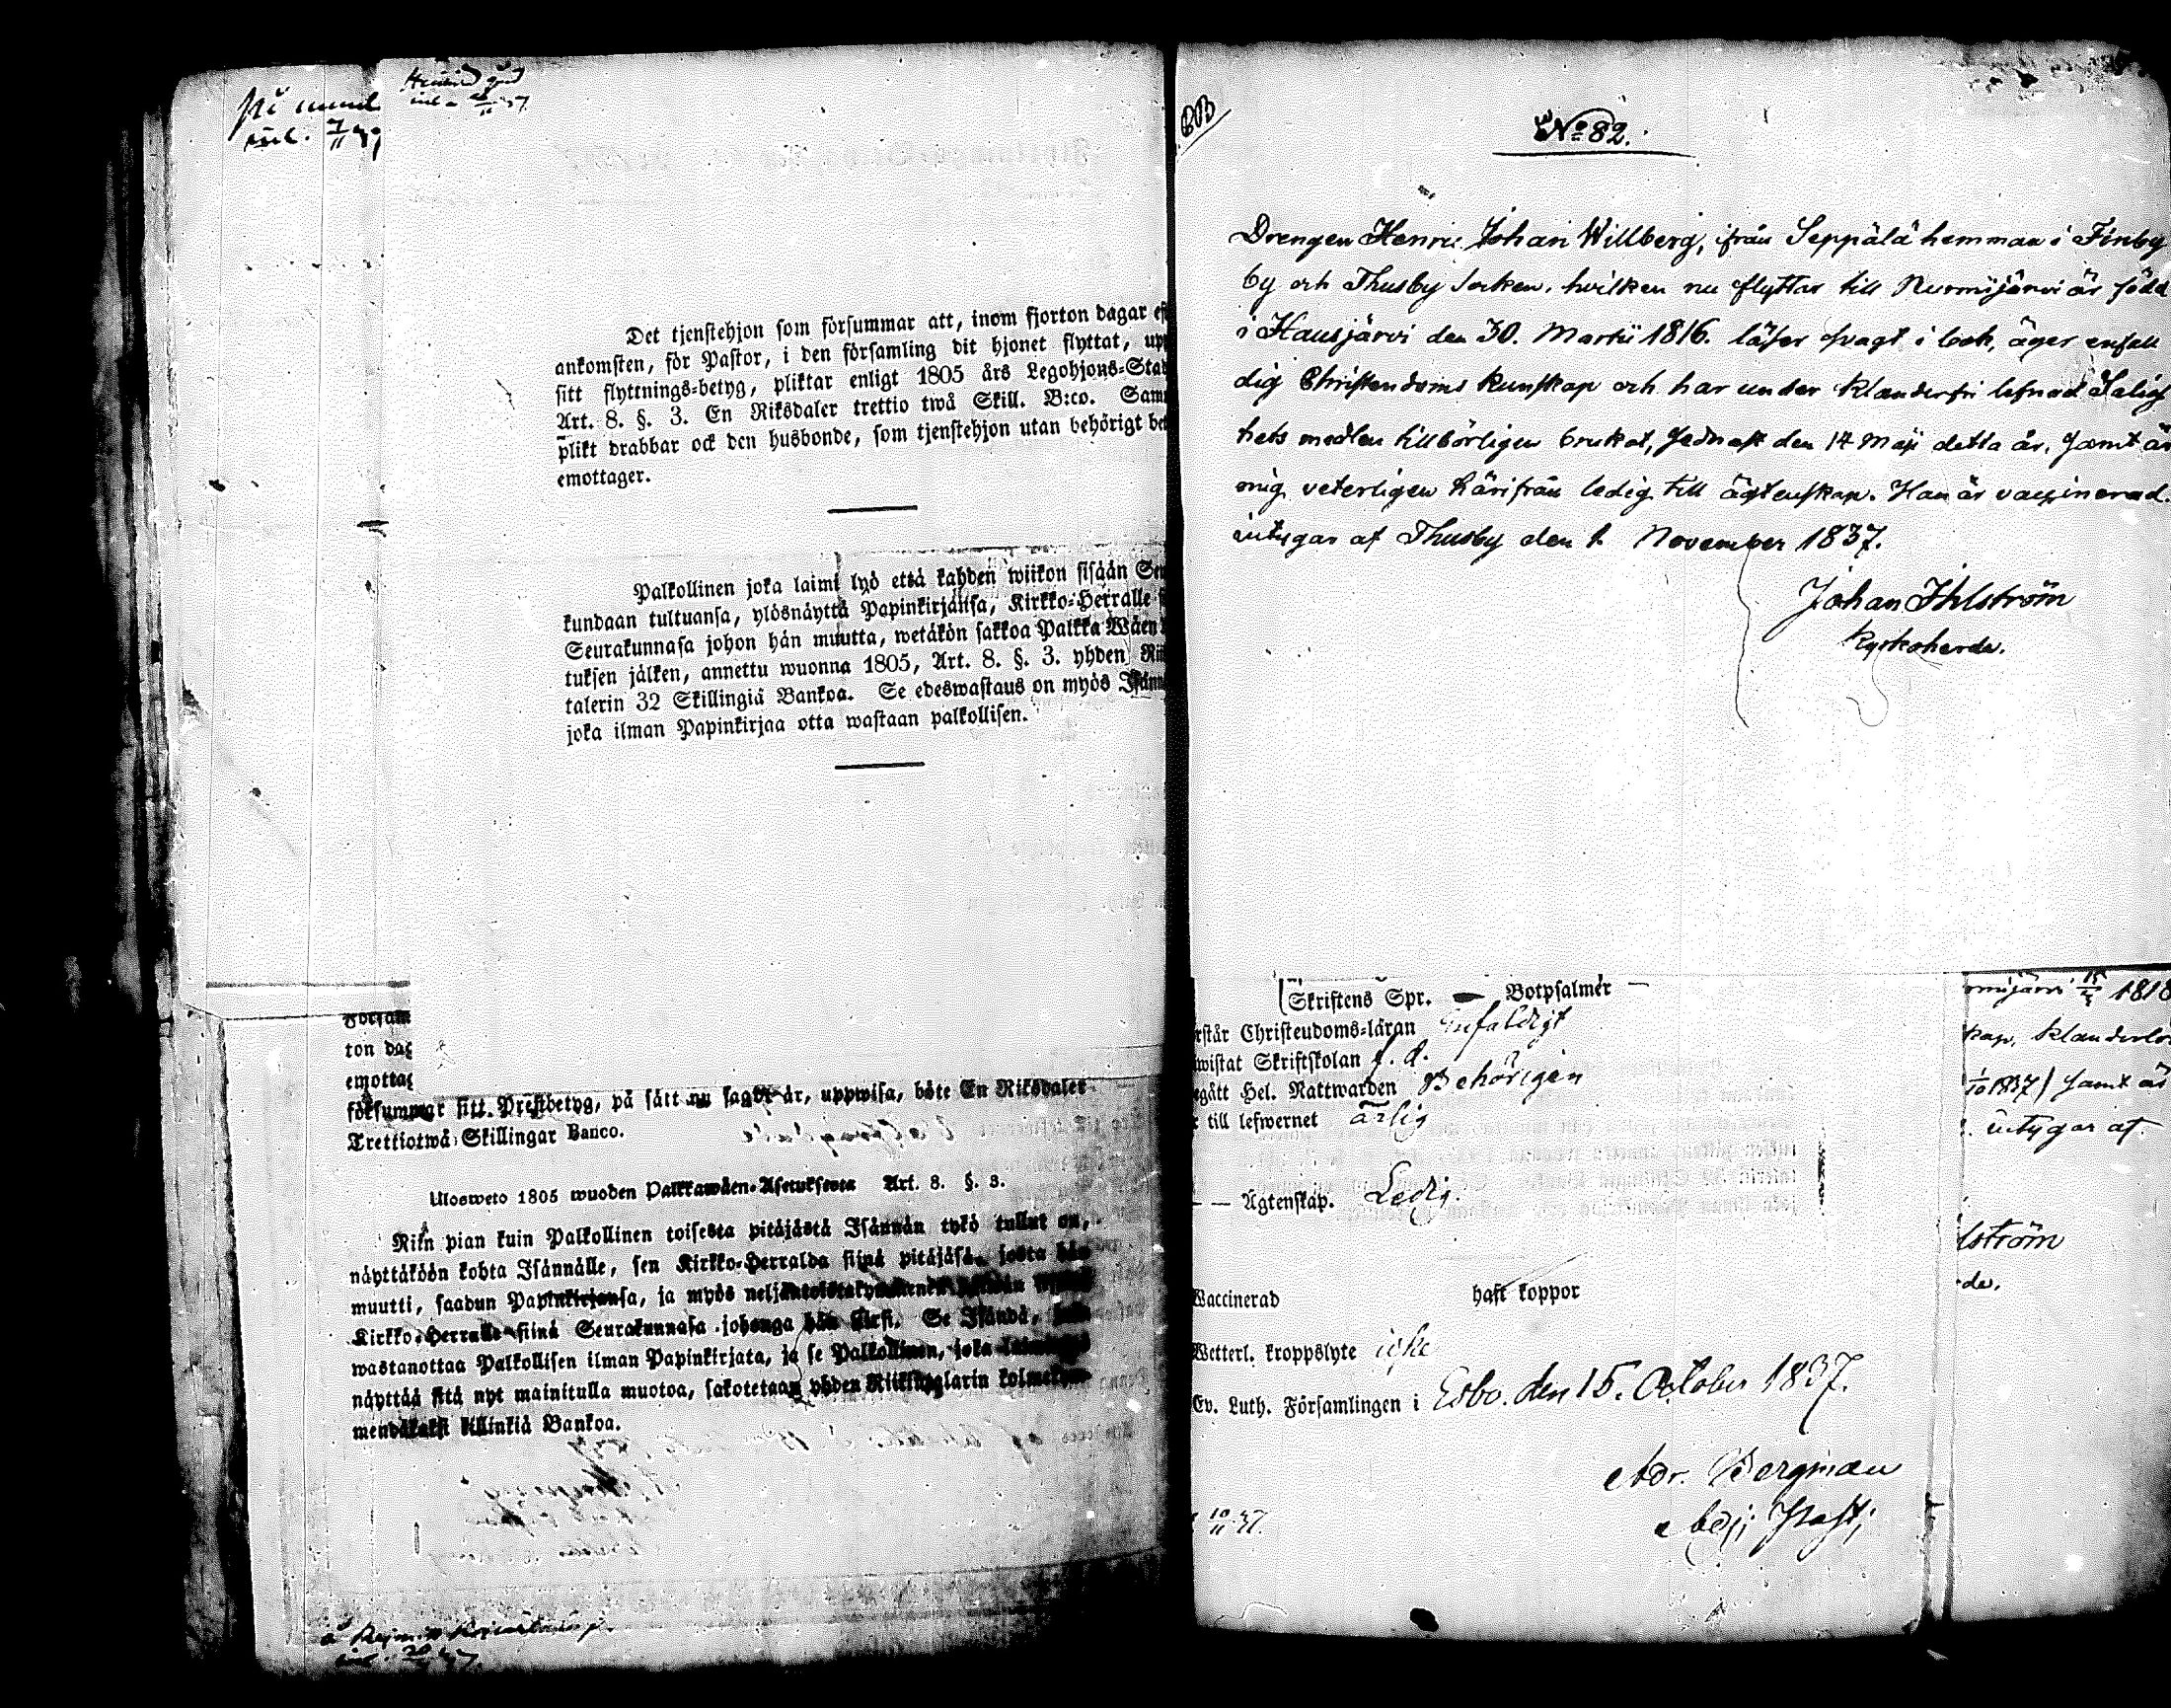 inl. 7/11 37
inl. 37
Det tjenstehjon som försummar att, inom fjorton dagar eft
ankomsten, för Pastor, i den församling dit hjonet flyttat, upp
sitt flyttnings-betyg, pliktar enligt 1805 års Legohjons-Stad
Art. 8. §. 3. En Riksdaler trettio twå Skill. B:co. Sam
plikt drabbar ock den husbonde, som tjenstehjon utan behörigt bet
emottager.
Palkollinen joka laimi lyö että kahden wiikon sisään Seu
kundaan tultuansa, ylösnäyttä Papinkirjänsa, Kirkko-Herralle s
Seurakunnasa johon hän muutta, wetäkön sakkoa Palkka Wäen
tuksen jälken, annettu wuonna 1805, Art. 8. §. 3. yhden Rii
talerin 32 Skillingiä Bankoa. Se edeswastaus on myös Isänn
joka ilman Papinkirjaa otta wastaan palkollisen.
Försam
ton dag
emottag
försummar sitt Prestbetyg, på sätt nu sagdt är, uppwisa, böte En Riksdaler
Trettiotwå Skillingar Banco.
Ulosweto 1805 wuoden Palkkawäen-Asetuksesta Art. 8. §. 3.
Niin pian kuin Palkollinen toisesta pitäjästä Isännän tykö tullut on,
näyttäköön kohta Isännälle, sen Kirkko-Herralda siinä pitäjäsä, josta hän
muutti, saadun Papinkirjansa, ja myös
Kirkko-Herralle siinä Seurakunnasa johonga hän siirsi. Se Isändä,
wastanottaa Palkollisen ilman Papinkirjata, ja se Palkollinen, joka
näyttää sitä nyt mainitulla muotoa, sakotetaan yhden Riiksitaglarin kolmekym-
mendäkaksi killinkiä Bankoa.
No 82.
Drengen Henric Johan Willberg, ifrån Seppälä hemman i Finby
by och Thusby socken, hvilken nu flyttar till Nurmijärvi är född
i Hausjärvi den 30. Martii 1816. läser svagt i bok, äger enfall
dig Christendoms kunskap och har under klanderfri lefnad Salig
hets medlen tillbörligen brukat, sednast den 14 Maji detta år, samt är
mig veterligen härifrån ledig till ägtenskap. Han är vaccinerad.
intygar af Thusby den 1. November 1837.
Johan Ihlström
Kyrkoherde.
Skriftens Spr. — Botpsalmer —
rstår Christendoms-läran Enfaldigt
wistat Skriftskolan f. d.
egått Hel. Nattwarden Behörigen
r till lefwernet ärlig
— — Ägtenskap. Ledig.
Waccinerad haft koppor
Wetterl. kroppslyte icke
Ev. Luth. Församlingen i Esbo. den 15. October 1837.
Adr. Bergman
Adj: Past:
10/11 37.
rmijärvi 15/3 1818
kap, klanderlös
1/10 1837) samt är
intygar af
lström
de.